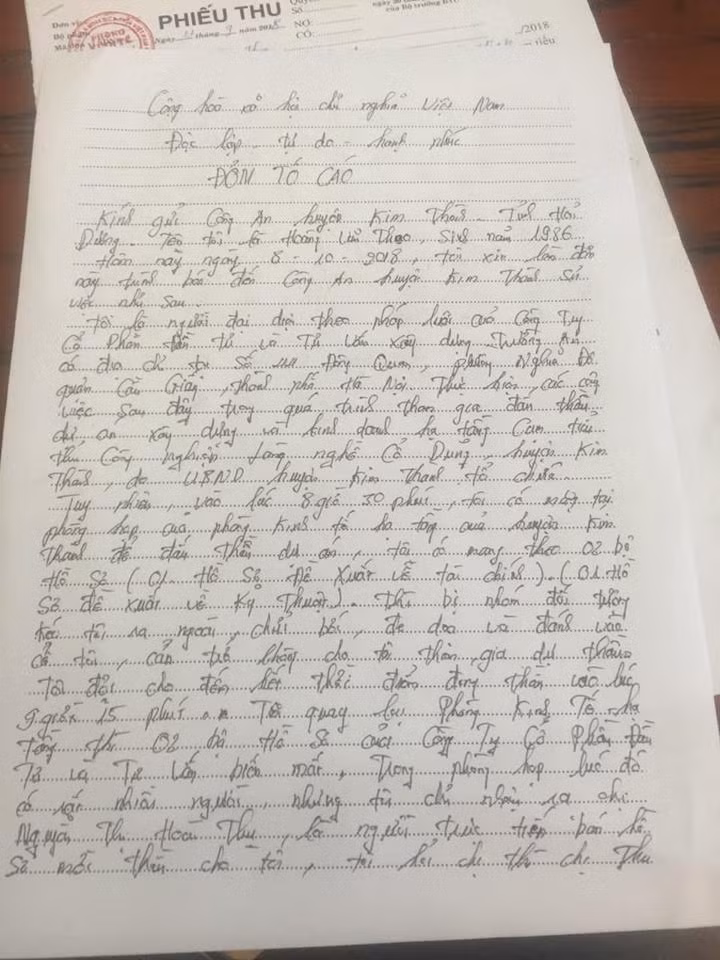 PHIẾU THU
Đơn vị
Bộ phận
Ngày 21 tháng 9 năm 2018
Số
NỢ:
CÓ:
của Bộ trưởng BTC
/2018
Cộng hoà xã hội chủ nghĩa Việt Nam
Độc lập - tự do - hạnh phúc
ĐƠN TỐ CÁO
Kính gửi Công An huyện Kim Thành - Tỉnh Hải
Dương. Tên tôi là Hoàng Văn Thao, Sinh năm 1986
Hôm nay ngày 8 - 10 - 2018, tôi xin làm đơn
này trình báo đến Công An huyện Kim Thành Sự
việc như sau.
Tôi là người đại diện theo pháp luật của Công Ty
Cổ Phần Đầu tư và Tư vấn xây dựng Trường An
có địa chỉ trụ Số Đông Quan, phường Nghĩa Đô
quận Cầu Giấy, thành phố Hà Nội. Thực hiện các công
việc sau đây trong quá trình tham gia đấu thầu
dự án xây dựng và kinh doanh hạ tầng Cụm tiểu
thủ Công nghiệp làng nghề Cổ Dũng, huyện Kim
Thành, do U.B.N.D huyện Kim Thành tổ chức.
Tuy nhiên, vào lúc 8 giờ 30 phút, tôi có mặt tại
phòng họp của phòng Kinh tế hạ tầng của huyện Kim
Thành để đấu thầu dự án, tôi có mang theo 02 bộ
Hồ Sơ (01 Hồ Sơ Đề Xuất về tài chính) - (01 Hồ
Sơ đề xuất về Kỹ Thuật). Thì bị nhóm đối tượng
kéo tôi ra ngoài, chửi bới, đe doạ và đánh vào
cổ tôi, cản trở không cho tôi tham gia dự thầu
Tôi đợi cho đến hết thời điểm đóng thầu vào lúc
9 giờ 15 phút Tôi quay lại Phòng Kinh Tế hạ
tầng thì 02 bộ Hồ Sơ của Công Ty Cổ Phần Đầu
Tư và Tư Vấn biến mất, Trong phòng họp lúc đó
có rất nhiều người, nhưng tôi chỉ nhận ra chị
Nguyễn Thị Hoài Thu, là người trực tiếp bán hồ
Sơ mời thầu cho tôi, tôi hỏi chị thì chị Thu